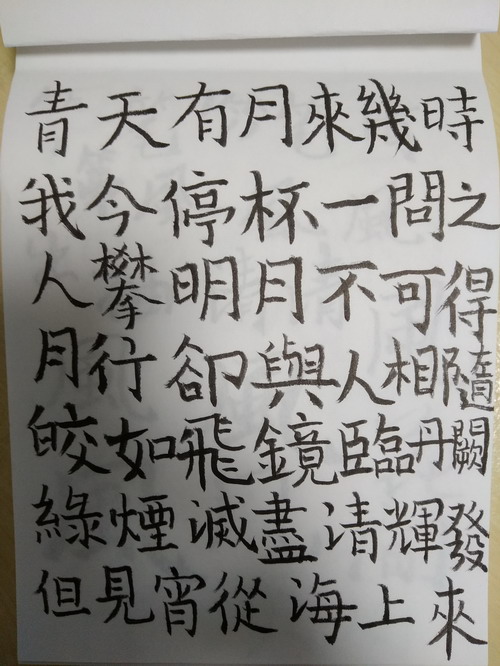 青天有月來幾時
我今停杯一問之
人攀明月不可得
月行卻與人相隨
皎如飛鏡臨丹闕
綠煙滅盡清輝發
但見宵從海上來